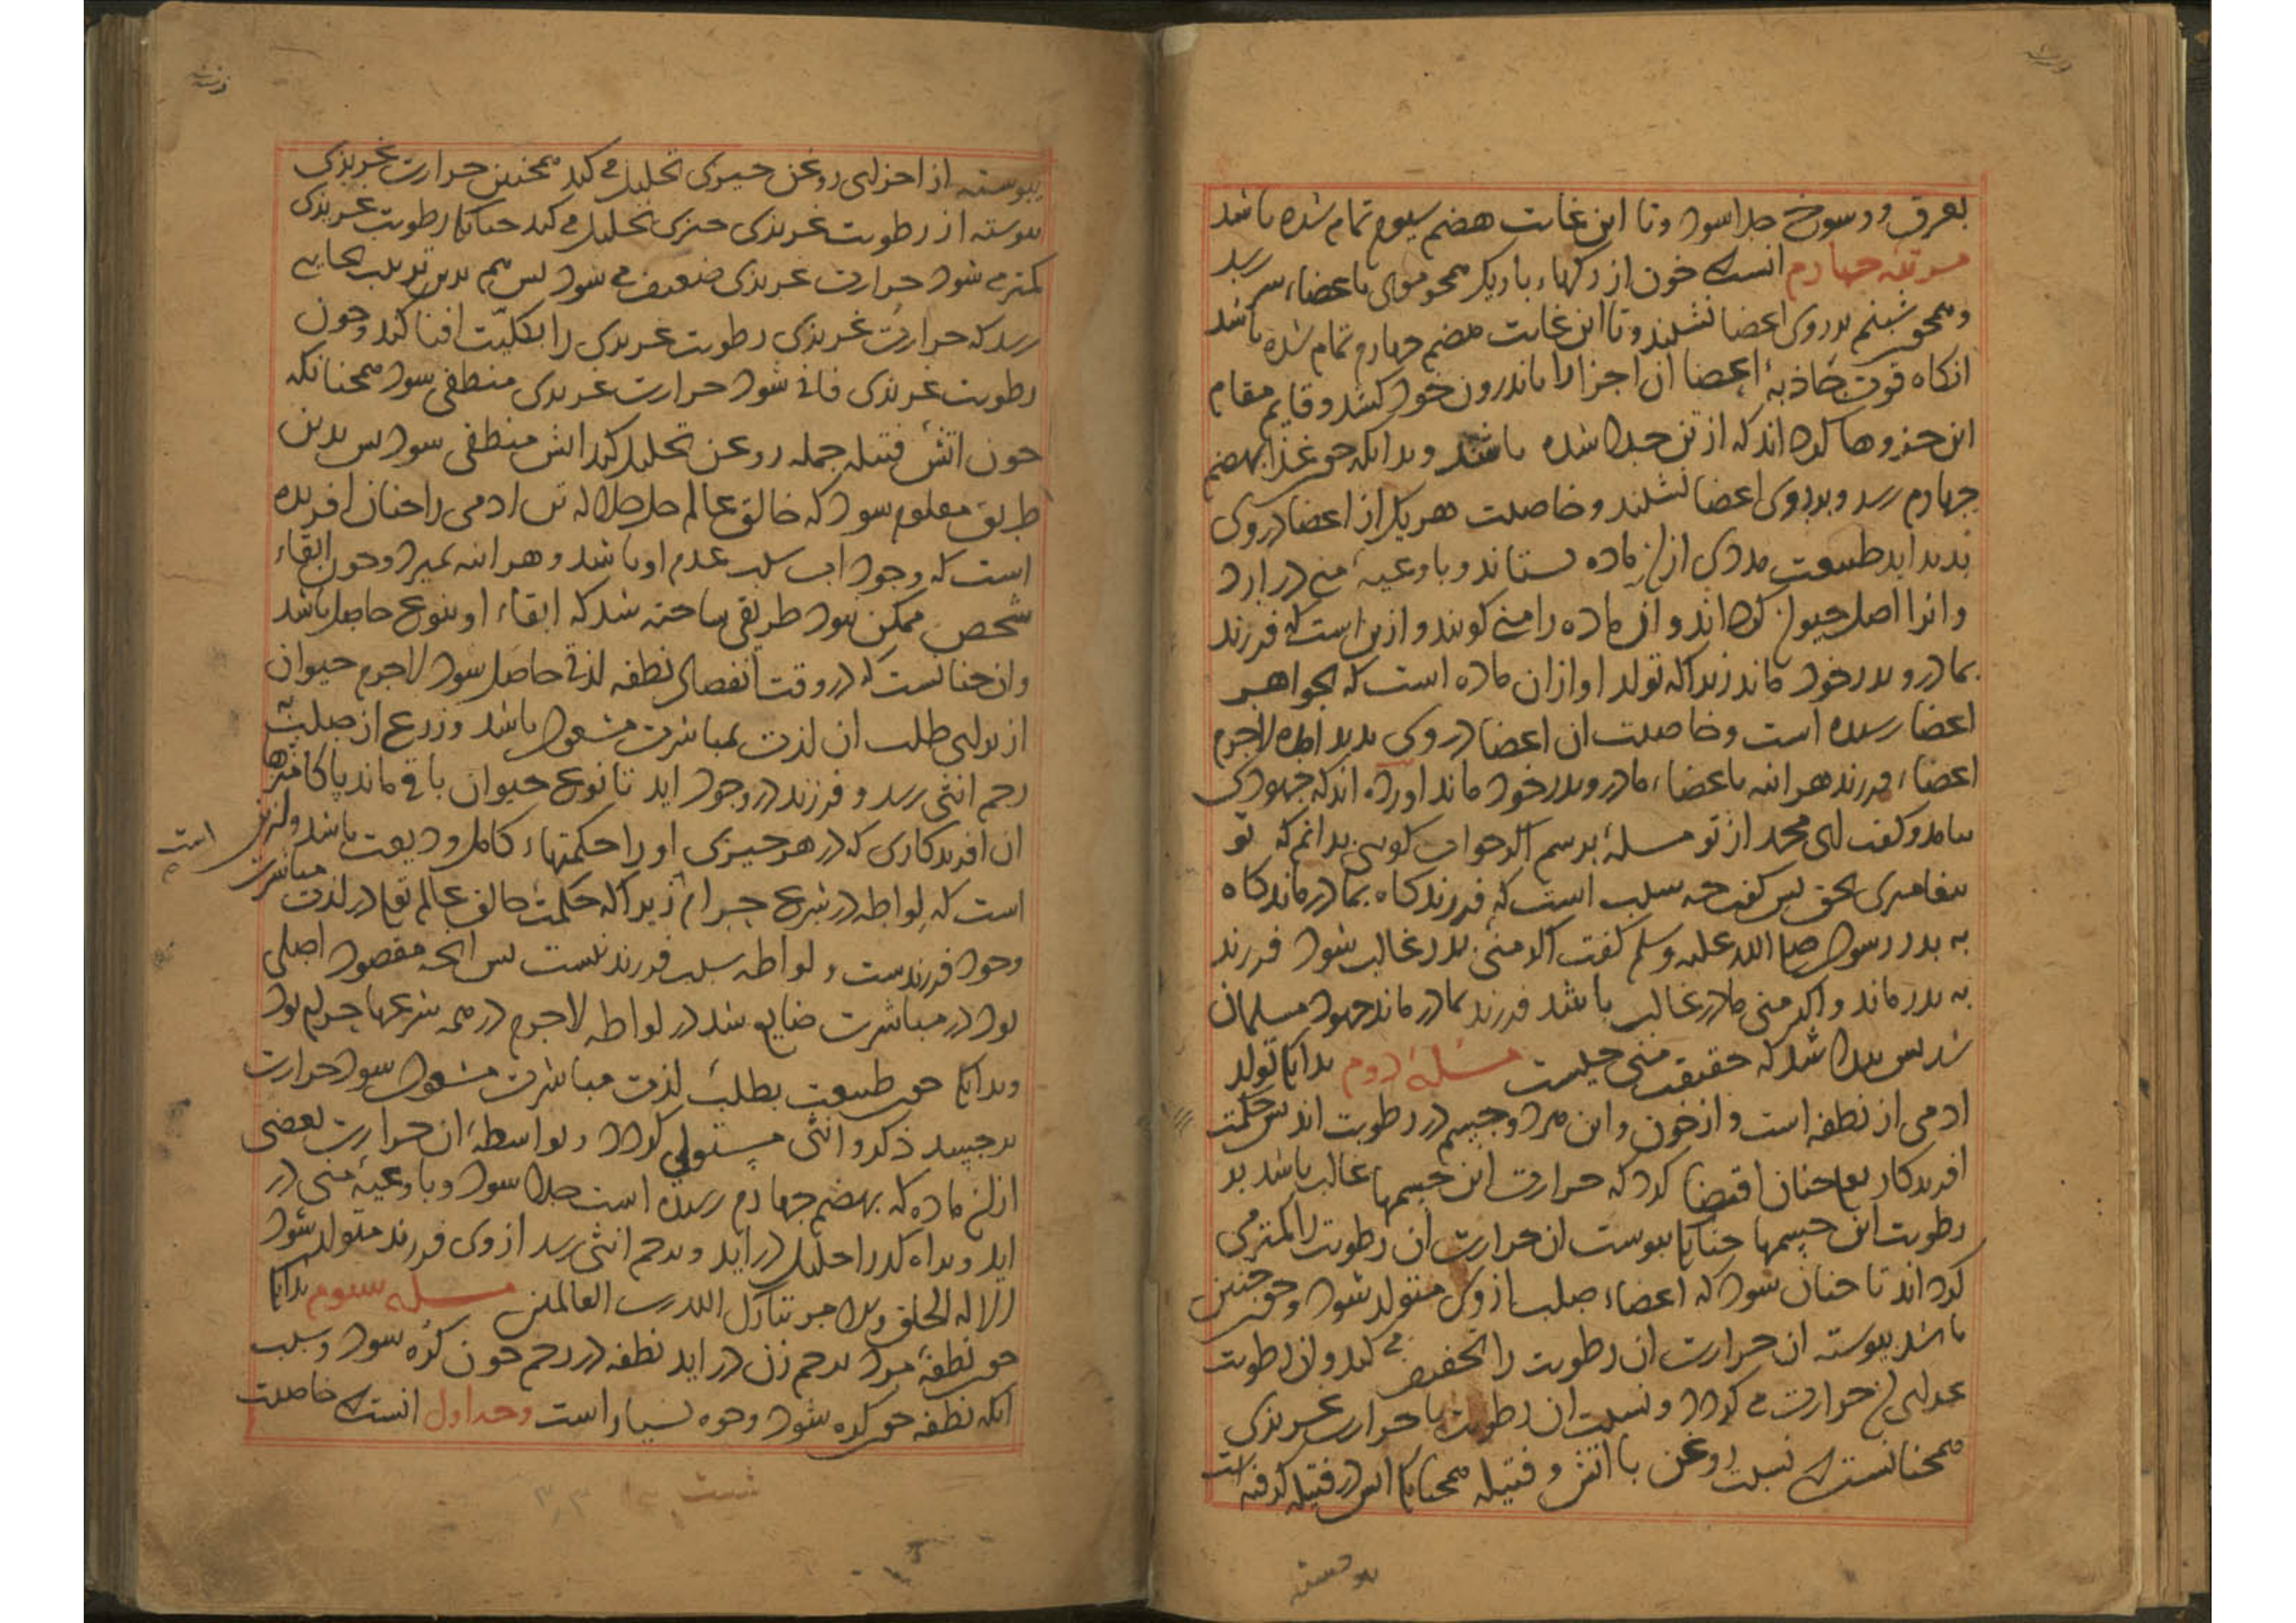 بعرق و وسوخ جدا شود و تا این غایت هضم سیوم تمام شده باشد
مرتبه چهارم انست که خون از رکهاء باریک همجو موی باعضاء سر رسد
و همجو شبنم بر روی اعضا نشیند و تا این غایت هضم چهارم تمام شده باشد
انکاه قوت جاذبهٔ اعضا ان اجزا را باندرون خود کشد و قایم مقام
این جزوها کرداند که از تن جدا شده باشد و بدانکه جون غذا بهضم
جهارم رسد و بر روی اعضا نشیند و خاصیت هر یک از اعضا در وی
بدید اید طبیعت مددی از ان ماده بستاند و باوعیهٔ منی در ارد
و انرا اصل حیوان کرداند و ان ماده را منی کویند و ازین است که فرزند
بمادر و بدر خود ماند زیرا که تولد او ازان ماده است که بجواهر
اعضا رسیده است و خاصیت ان اعضا در وی بدید امده لاجرم
اعضاء فرزند هر اینه باعضاء مادر و بدر خود ماند اورده اند که جهودی
بیامد و کفت ای محمد از تو مسلهٔ برسم اکر جواب کویی بدانم که تو
بیغامبری بحق بس کفت جه سبب است که فرزند کاه بمادر ماند کاه
به بدر رسول صلی الله علیه وسلم کفت اکر منی بدر غالب شود فرزند
به بدر ماند و اکر منی مادر غالب باشد فرزند بمادر ماند جهود مسلمان
شد بس بیدا شد که حقیقت منی جیست مسئلهٔ دوم بدانک تولد
ادمی از نطفه است و از خون و این هر دو جسم در رطوبت اند بس حکمت
افریدکار تعالی جنان اقتضا کرد که حرارت این جسمها غالب باشد بر
رطوبت این جسمها جنانک بیوسته ان حرارت ان رطوبت را کمتر می
کرداند تا جنان شود که اعضاء صلب از وی متولد شود و جون جنین
باشد بیوسته ان حرارت ان رطوبت را تجفیف می کند و ان رطوبت
غدای ان حرارت می کردد و نسبت ان رطوبت با حرارت غریزی
همجنانست که نسبت روغن با اتش و فتیله همجنانک اتش در فتیله کرفته است
بیوسته
بیوسته از اجزای روغن جیزی تحلیل می کند همجنین حرارت غریزی
بیوسته از رطوبت غریزی جیزی تحلیل می کند جنانک رطوبت غریزی
کمتر می شود حرارت غریزی ضعیف می شود بس هم بدین ترتیب بجایی
رسد که حرارت غریزی رطوبت غریزی را بکلیّت افنا کند و جون
رطوبت غریزی فانی شود حرارت غریزی منطفی شود همجنانکه
جون اتش فتیله جمله روغن تحلیل کند اتش منطفی شود بس بدین
طریق معلوم شود که خالق عالم جل جلاله تن ادمی را جنان افریده
است که وجود او سبب عدم او باشد و هر اینه بمیرد و جون ابقاء
شخص ممکن نبود طریقی ساخته شد که ابقاء او بنوع حاصل باشد
و ان جنانست که در وقت انفصال نطفه لذتی حاصل شود لاجرم حیوان
از برای طلب ان لذت بمباشرت مشغول باشد و زرع از صلب به
رحم انثی رسد و فرزند در وجود اید تا نوع حیوان باقی ماند پاکا منزها
ان افریدکاری که در هر جیزی او را حکمتهاء کامل ودیعت باشد و ازین است
است که لواطه در شرع حرام زیرا که حکمت خالق عالم تعالی در لذت مباشرت
وجود فرزندست و لواطه سبب فرزند نیست بس انجه مقصود اصلی
بود در مباشرت ضایع شد در لواطه لاجرم در همه شرعها حرام بود
و بدانک جون طبیعت بطلب لذت مباشرت مشغول شود حرارت
بر جسد ذکر و انثی مستولی کردد و بواسطهٔ ان حرارت بعضی
از ان ماده که بهضم جهارم رسیده است جدا شود و باوعیهٔ منی در
اید و براه کدر احلیل در اید و برحم انثی رسد از وی فرزند متولد شود
الا له الخلق والامر تبارک الله رب العالمین مسله سوم بدانک
جون نطفهٔ مرد برحم زن در اید نطفه در رحم جون کره شود و سبب
انکه نطفه جون کره شود وجوه بسیار است وجه اول انست که خاصیت